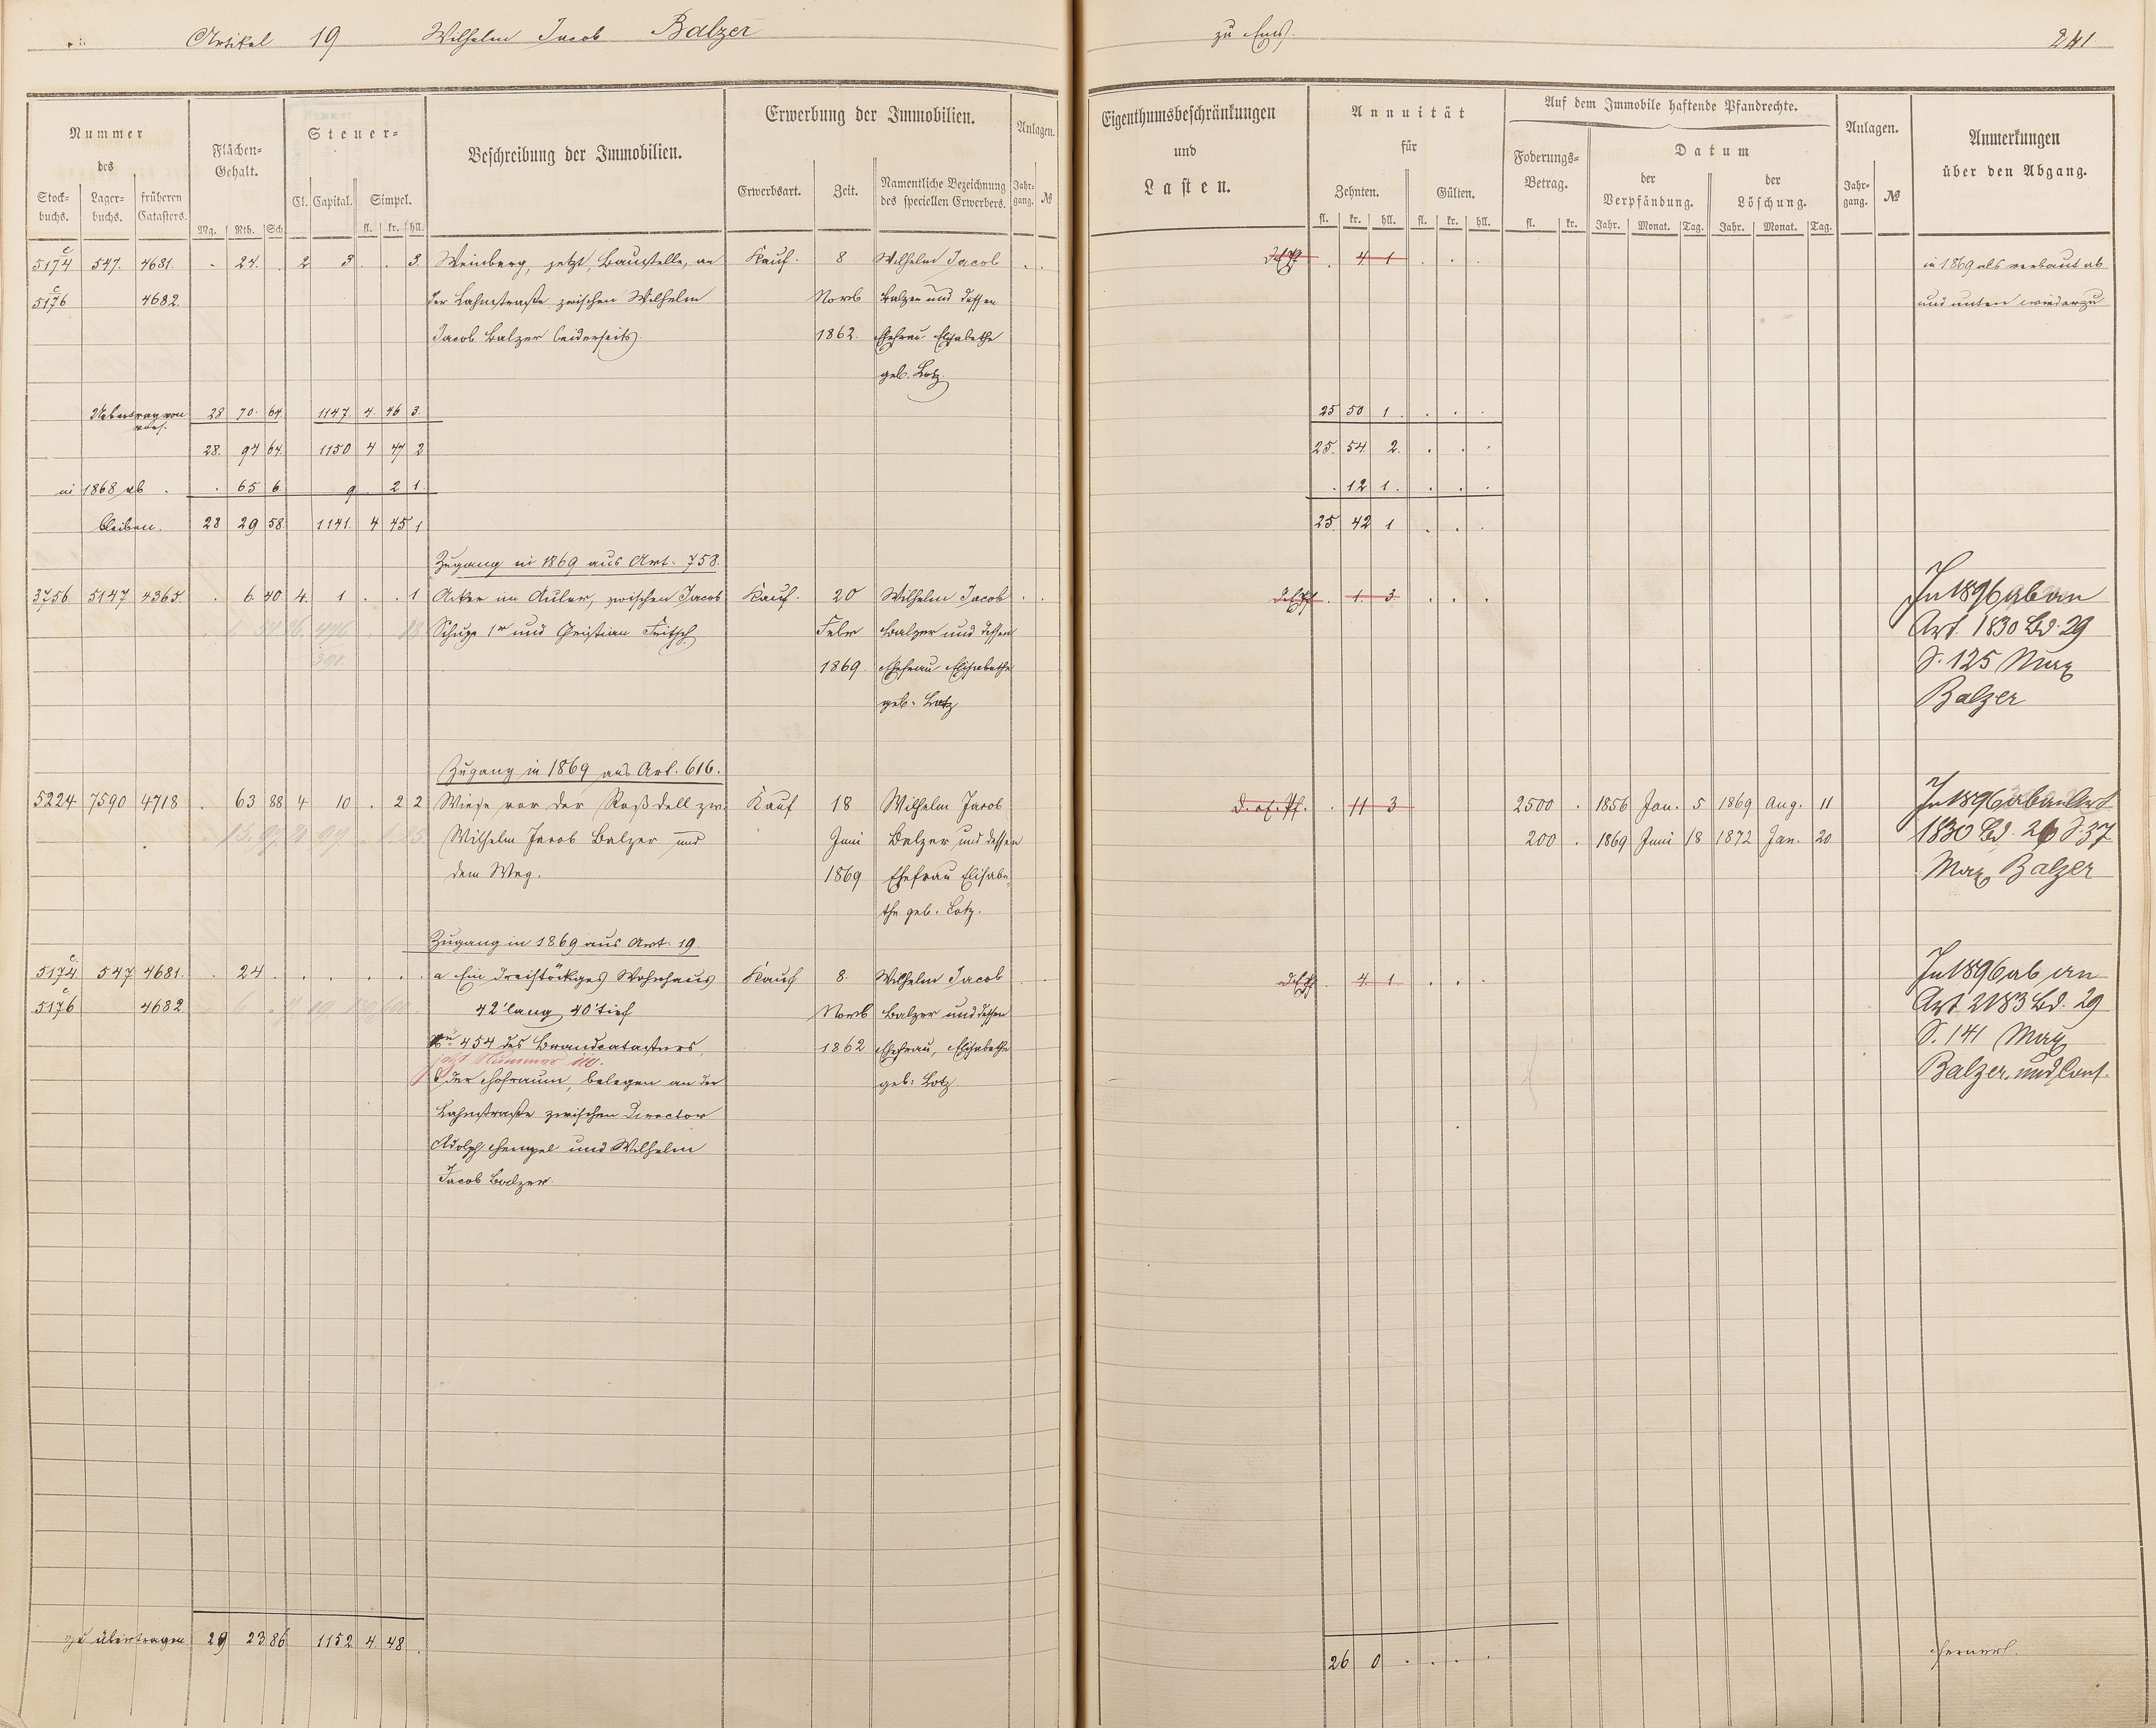 Artikel 19 Wilhelm Jacob Balzer zu Ems. 241
Nummer des
Stockbuchs. Lagerbuchs. früheren Catasters.
Flächen-Gehalt.
Mg. Rth. Sch.
Steuer-
Cl. Capital. Simpel.
fl. kr. hll.
Beschreibung der Immobilien.
Erwerbung der Immobilien.
Erwerbsart. Zeit. Namentliche Bezeichnung des speciellen Erwerbers.
Anlagen.
Jahrgang. №
Eigenthumsbeschränkungen
und
Lasten.
Annuität
für
Zehnten. Gülten.
fl. kr. hll. fl. kr. hll.
Auf dem Immobile haftende Pfandrechte.
Foderungs-Betrag.
fl. kr.
Datum
der Verpfändung. der Löschung.
Jahr. Monat. Tag. Jahr. Monat. Tag.
Anlagen.
Jahrgang. №
Anmerkungen
über den Abgang.
5174 c 547. 4681. . 24. . 2 3 . . 3. Weinberg, jetzt Baustelle, an Kauf. 8 Wilhelm Jacob . 4 1 . . . in 1869 als verbaut ab
5176 c 4682. der Lahnstraße zwischen Wilhelm Novb Balzer und dessen und unten wieder zu
Jacob Balzer beiderseits. 1862. Ehefrau Elisabethe
geb. Lotz.
Uebertrag von 28 70. 64 1147. 4. 46 3. 25 50 1 . . .
28. 94 64. 1150 4 47 2 25. 54 2. . . .
in 1868 ab . . 65 6. 9 . 2 1. . 12 1. . . .
bleiben. 28 29 58 1141. 4 45 1 25. 42 1 . . .
Zugang in 1869 aus Art. 758.
3756 5147 4365. . 6. 40 4. 1 . . 1 Acker im Auler, zwischen Jacob Kauf. 20 Wilhelm Jacob . . . 1. 3 . . . In 1896 ab an
Schupp 1r und Christian Fritsch Febr Balzer und dessen Art. 1830 Bd. 29
1869. Ehefrau Elisabethe S. 125 Max
geb. Lotz Balzer
Zugang in 1869 aus Art. 616.
5224 7590 4718 . 63 88 4 10 . 2 2 Wiese vor der Roßdell zw. Kauf 18 Wilhelm Jacob . 11 3 2500 . 1856 Jan. 5 1869 Aug. 11 In 1896 ab an Art
Wilhelm Jacob Balzer und Juni Balzer und dessen 200 . 1869 Juni 18 1872 Jan. 20 1830 Bd. 26 S. 37
dem Weg. 1869 Ehefrau Elisabe- Max Balzer
the geb. Lotz.
Zugang in 1869 aus Art. 19
5174 c 547 4681. . 24 . . . . . . a Ein dreistöckiges Wohnhaus Kauf 8. Wilhelm Jacob . . . 4. 1 . . . In 1896 ab an
5176 c 4682 42' lang 40' tief Novb Balzer und dessen Art 2183 Bd. 29
No 454 des Brandcatasters, 1862 Ehefrau, Elisabethe S. 141 Max
jetzt Nummer
b der Hofraum, belegen an der geb. Lotz Balzer und Cons.
Lahnstraße zwischen Director
Adolph Hempel und Wilhelm
Jacob Balzer.
zu übertragen 29 23 86 1152 4. 48 . 26 0 . . . .